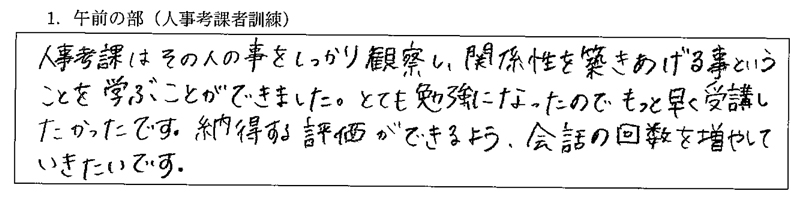 1. 午前の部（人事考課者訓練）
人事考課はその人の事をしっかり観察し、関係性を築きあげる事という
ことを学ぶことができました。とても勉強になったのでもっと早く受講し
たかったです。納得する評価ができるよう、会話の回数を増やして
いきたいです。